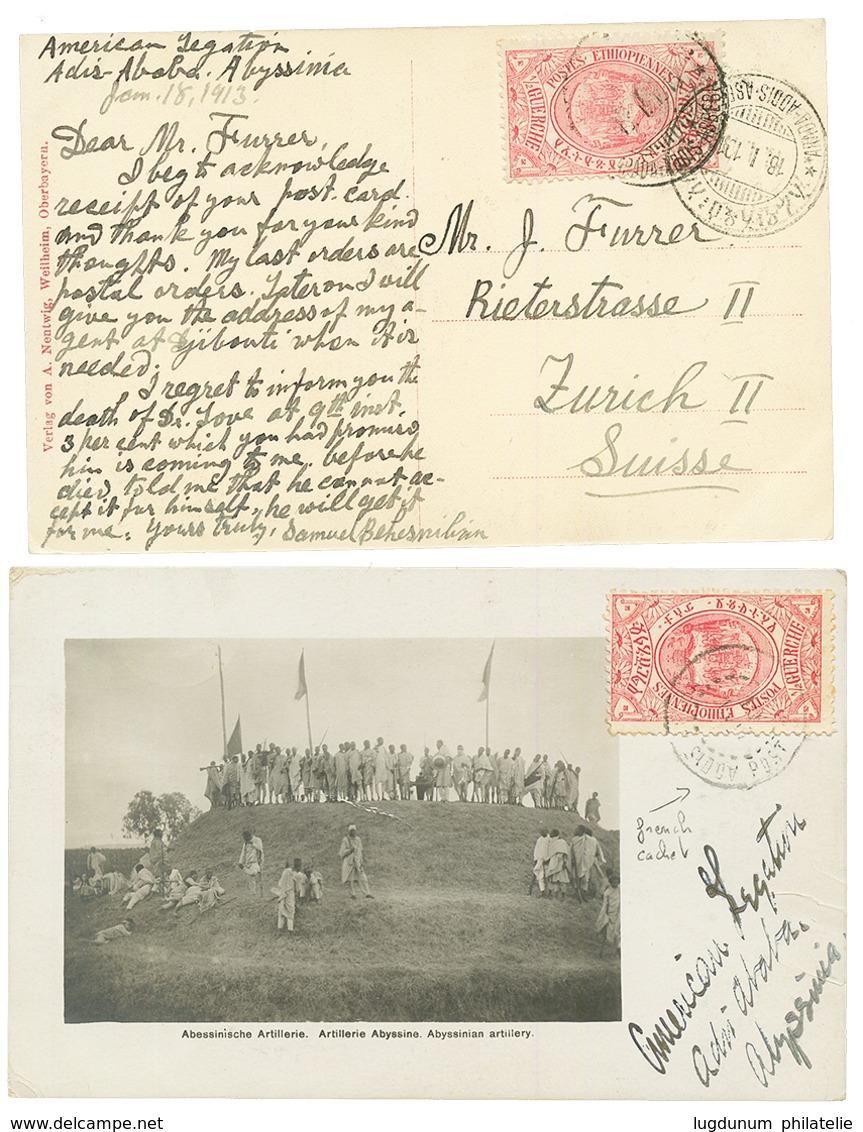 American Legation
Adis-Ababa. Abyssinia
Jan. 18, 1913.
Dear Mr. Furrer,
I beg to acknowledge
receipt of your post-card.
and thank you for your kind
thoughts. My last orders are
postal orders. Later on I will
give you the address of my a-
gent at Djibouti when it is
needed.
I regret to inform you the
death of Dr. Love at 9th inst.
3 per cent which you had promised
him is coming to me. before he
died, told me that he cannot ac-
cept it for himself, he will get it
for me. Yours truly, Samuel Behesnilian
Verlag von A. Nentwig, Weilheim, Oberbayern.
POSTES ETHIOPIENNES
¼ GUERCHE
ADDIS-ABEBA
18. 1. 13
Mr. J. Furrer
Rieterstrasse II
Zurich II
Suisse
¼ GUERCHE
POSTES ETHIOPIENNES
ADDIS
POST
french
cachet
American Legation
Adis Ababa.
Abyssinia.
Abessinische Artillerie. Artillerie Abyssine. Abyssinian artillery.
lugdunum philatelie